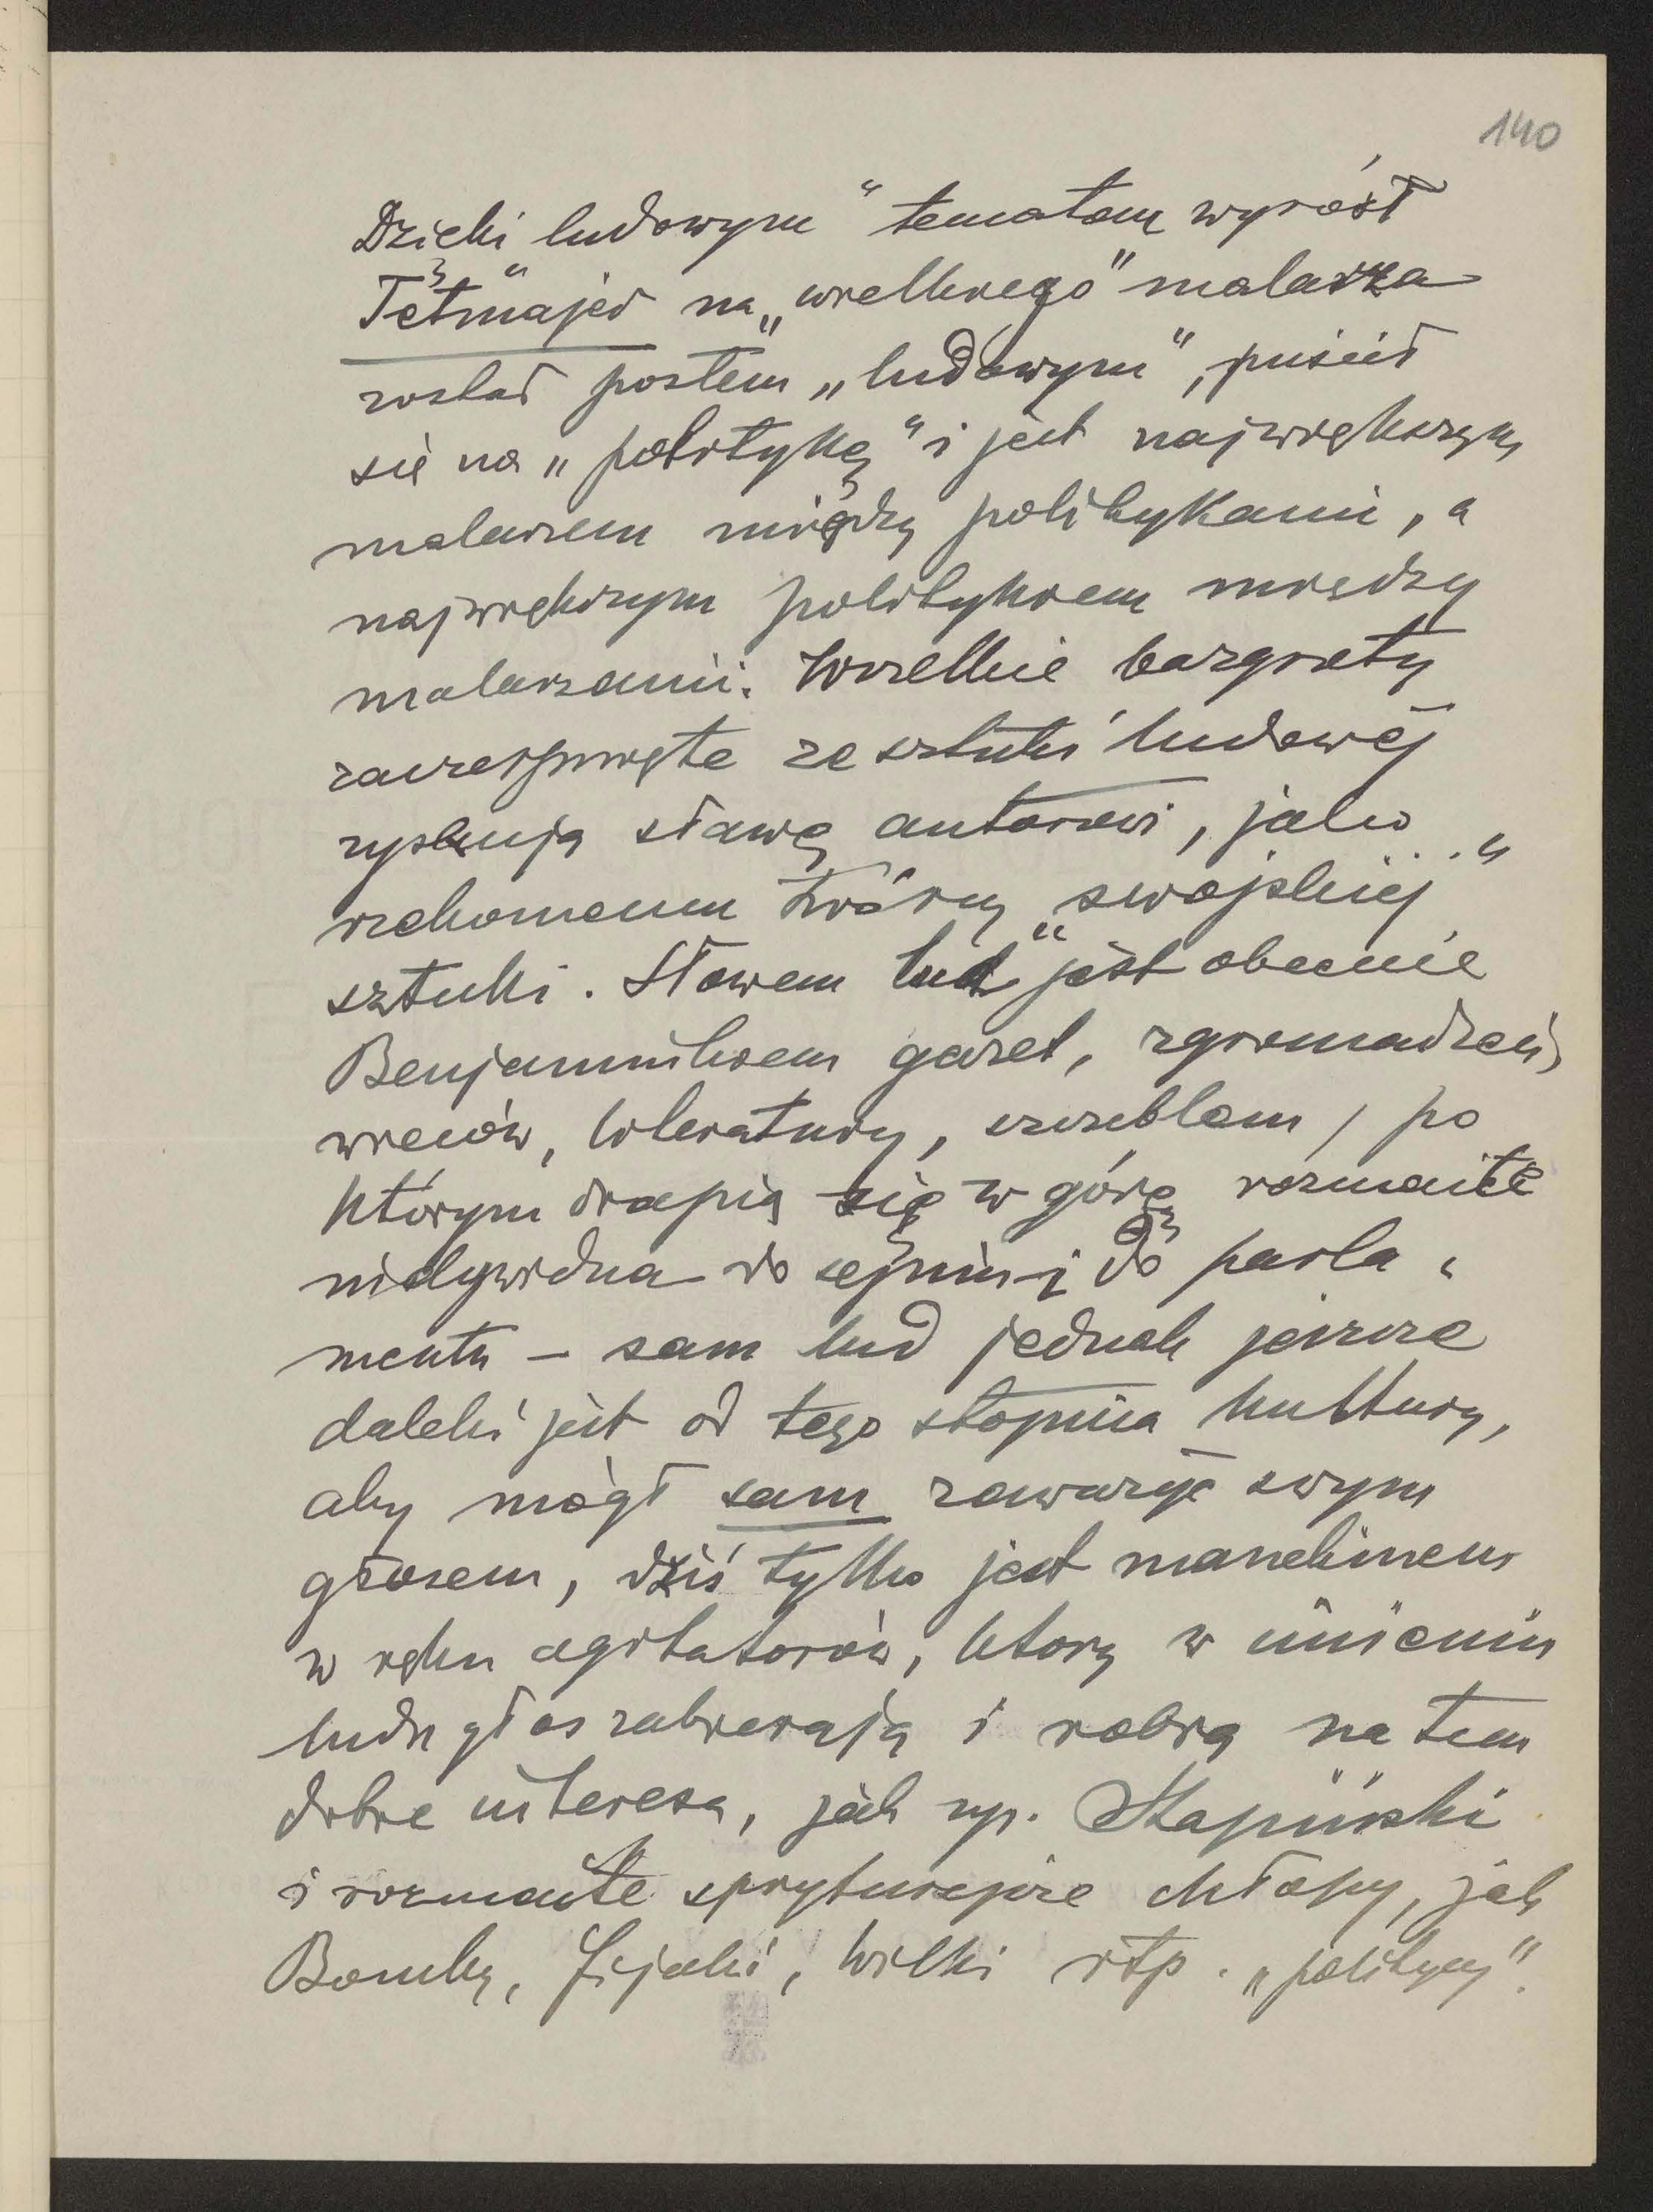 140
Dzięki ludowym" tematom wyrósł
Tetmajer na „wielkiego" malarza
został posłem „ludowym", puścił
się na „politykę" i jest największym
malarzem między politykami, a
największym politykiem między
malarzami. Wszelkie bazgroty
zaczerpnięte ze sztuki ludowej
zyskują sławę autorowi, jako
rzekomemu twórcy „swojskiej"
sztuki. Słowem lud" jest obecnie
Benjaminkiem gazet, zgromadzeń,
wieców, literatury, szczeblem, po
którym drapią się w górę rozmaite
indywidua do sejmu i do parla-
mentu – sam lud jednak jeszcze
daleki jest od tego stopnia kultury,
aby mógł sam zaważyć swym
głosem, dziś tylko jest manekinem
w ręku agitatorów, którzy w imieniu
ludu głos zabierają i robią na tem
dobre interesa, jak np. Stapiński
i rozmaite sprytniejsze chłopy, jak
Bomby, Fijaki, Wilki itp. „politycy".